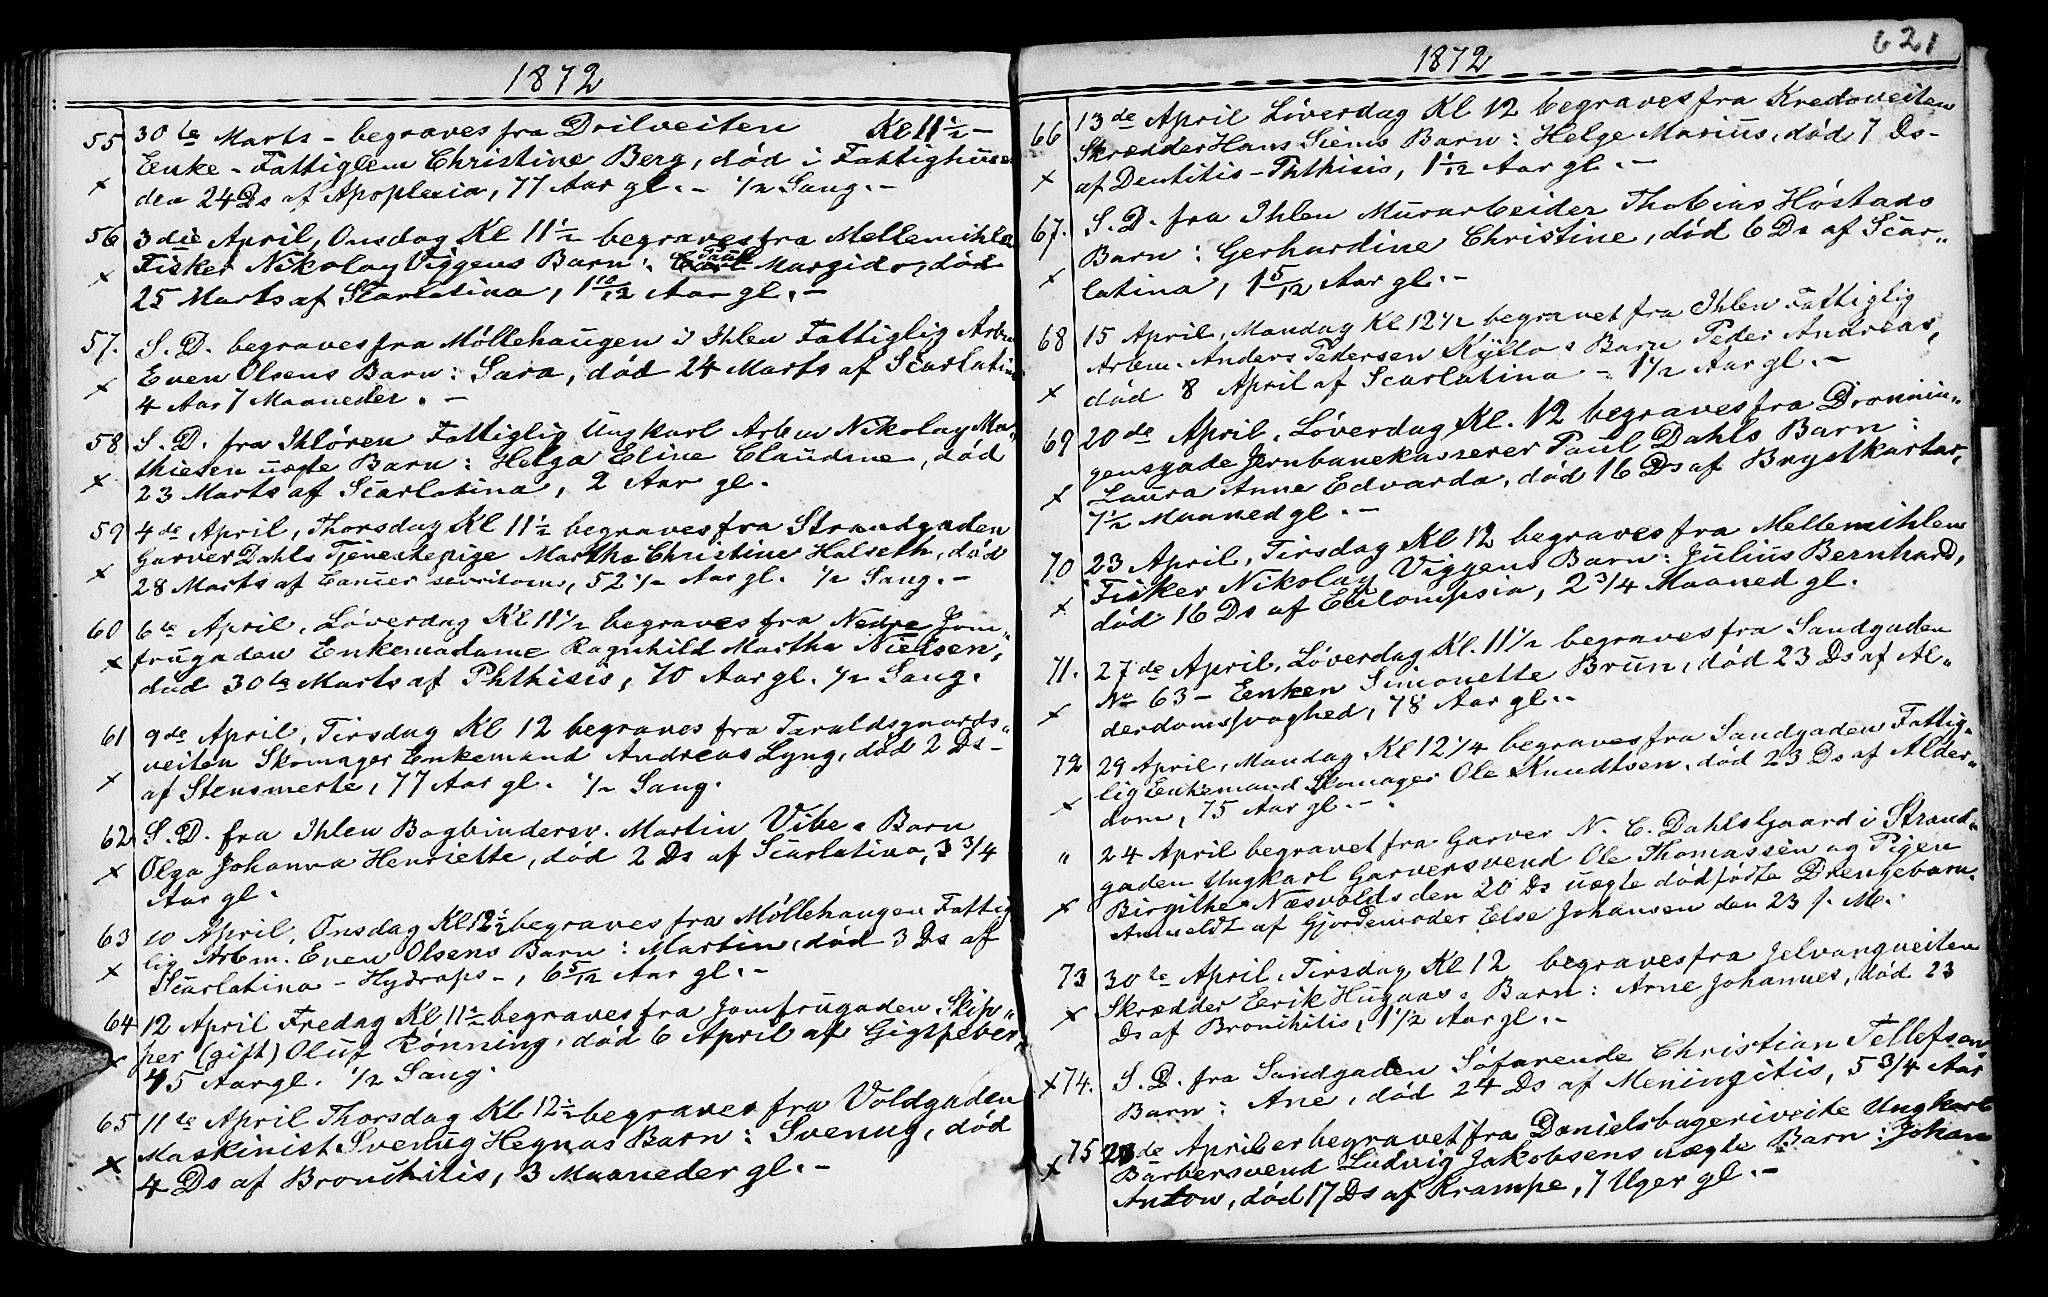 1872
55 30te Marts - begraves fra Drilveiten Kl 11 1/2 -
Enke - Fattiglem Christine Berg, død i Fattighuset
x den 24 Ds af Apoplexia, 77 Aar gl. - 1/2 Sang. -
56 3die April, Onsdag Kl 11 1/2 begraves fra Mellemihlen
Fisker Nikolay Viggens Barn: Paul Margido, død
x 25 Marts af Scarlatina, 1 10/12 Aar gl. -
57. S. D. begraves fra Møllehaugen i Ihlen Fattiglig Arbm
Even Olsens Barn: Sara, død 24 Marts af Scarlatina
x 4 Aar 7 Maaneder. -
58 S. D. fra Ihlören Fattiglig Ungkarl Arbm Nikolay Ma„
thiesen uægte Barn: Helga Eline Claudine, død
x 23 Marts af Scarlatina, 2 Aar gl.
59 4de April, Thorsdag Kl 11 1/2 begraves fra Strandgaden
Garver Dahls Tjenestepige Martha Christine Halseth, død
x 28 Marts af Cancer, 52 1/2 Aar gl. 1/2 Sang. -
60 6te April, Løverdag Kl 11 1/2 begraves fra Nedre Jom„
x frugaden Enkemadame Ragnhild Martha Nielsen,
død 30te Marts af Phthisis, 70 Aar gl. 1/2 Sang.
61 9de April, Tirsdag Kl 12 begraves fra Taraldsgaards„
veiten Skomager Enkemand Andreas Lyng, død 2 Ds -
x af Stensmerte, 77 Aar gl. 1/2 Sang.
62 S. D. fra Ihlen Bogbindersv. Martin Vibes Barn
x Olga Johanna Henriette, død 2 Ds af Scarlatina, 3 3/4
Aar gl.
63 10 April, Onsdag Kl 12 1/2 begraves fra Møllehaugen Fattig
lig Arbm. Even Olsens Barn: Martin, død 3 Ds af
x Scarlatina - Hydrops -, 6 5/12 Aar gl. -
64 12 April Fredag Kl 11 1/2 begraves fra Jomfrugaden Skip„
x per (gift) Oluf Rønning, død 6 April af Gigtfeber,
45 Aar gl. 1/2 Sang.
65 11te April Thorsdag Kl 12 1/2 begraves fra Voldgaden
Maskinist Svenug Hegnas Barn: Svenug, død
x 4 Ds af Bronchitis, 3 Maaneder gl. -
1872 621
66 13de April Løverdag Kl 12 begraves fra Kredsveiten
Skrædder Hans Siems Barn: Helge Marius, død 7 Ds -
x af Dentitis - Phthisis, 1 1/12 Aar gl. -
67. S. D. fra Ihlen Murarbeider Thobias Høstads
Barn: Gerhardine Christine, død 6 Ds af Scar„
x latina, 1 5/12 Aar gl. -
68 15 April, Mandag Kl 12 1/2 begravet fra Ihlen Fattiglig
Arbm. Anders Pedersen Kyllos Barn Peder Andreas,
x død 8 April af Scarlatina - 1 1/2 Aar gl. -
69 20de April, Løverdag Kl. 12 begraves fra Dronnin„
gensgade Jernbanekasserer Paul Dahls Barn:
x Laura Anne Edvarda, død 16 Ds af Brystkattar,
7 1/2 Maaned gl. -
70 23 April, Tirsdag Kl 12 begraves fra Mellemihlen
Fisker Nikolay Viggens Barn: Julius Bernhard,
x død 16 Ds af Eclampsia, 2 3/4 Maaned gl.
71. 27de April, Løverdag Kl. 11 1/2 begraves fra Sandgaden
No 63 - Enken Simonette Brun, død 23 Ds af Al„
x derdomssvaghed, 78 Aar gl. -
72 29 April, Mandag Kl 12 1/4 begraves fra Sandgaden Fattig„
lig Enkemand Skomager Ole Knudtsen, død 23 Ds af Alder„
x dom, 75 Aar gl. - .
„ 24 April begravet fra Garver N. C. Dahls Gaard i Strand„
gaden Ungkarl Garversvend Ole Thomassen og Pigen
x Birgithe Næsvolds den 20 Ds uægte dødfødte Drengebarn.
Anmeldt af Gjordemoder Else Johansen den 23 f. M.
73 30te April, Tirsdag Kl 12 begraves fra Jelvangveiten
Skrædder Eerik Hugaas's Barn: Arne Johannes, død 23
x Ds af Bronchitis, 1 1/2 Aar gl. -
x 74. S. D. fra Sandgaden Söfarende Christian Tellefsens
Barn: Ane, død 24 Ds af Meningitis, 5 3/4 Aar
75 23de April er begravet fra Danielsbageriveite Ungkarl
x Barbersvend Ludvig Jakobsens uægte Barn: Johan
Anton, død 17 Ds af Krampe, 7 Uger gl. -